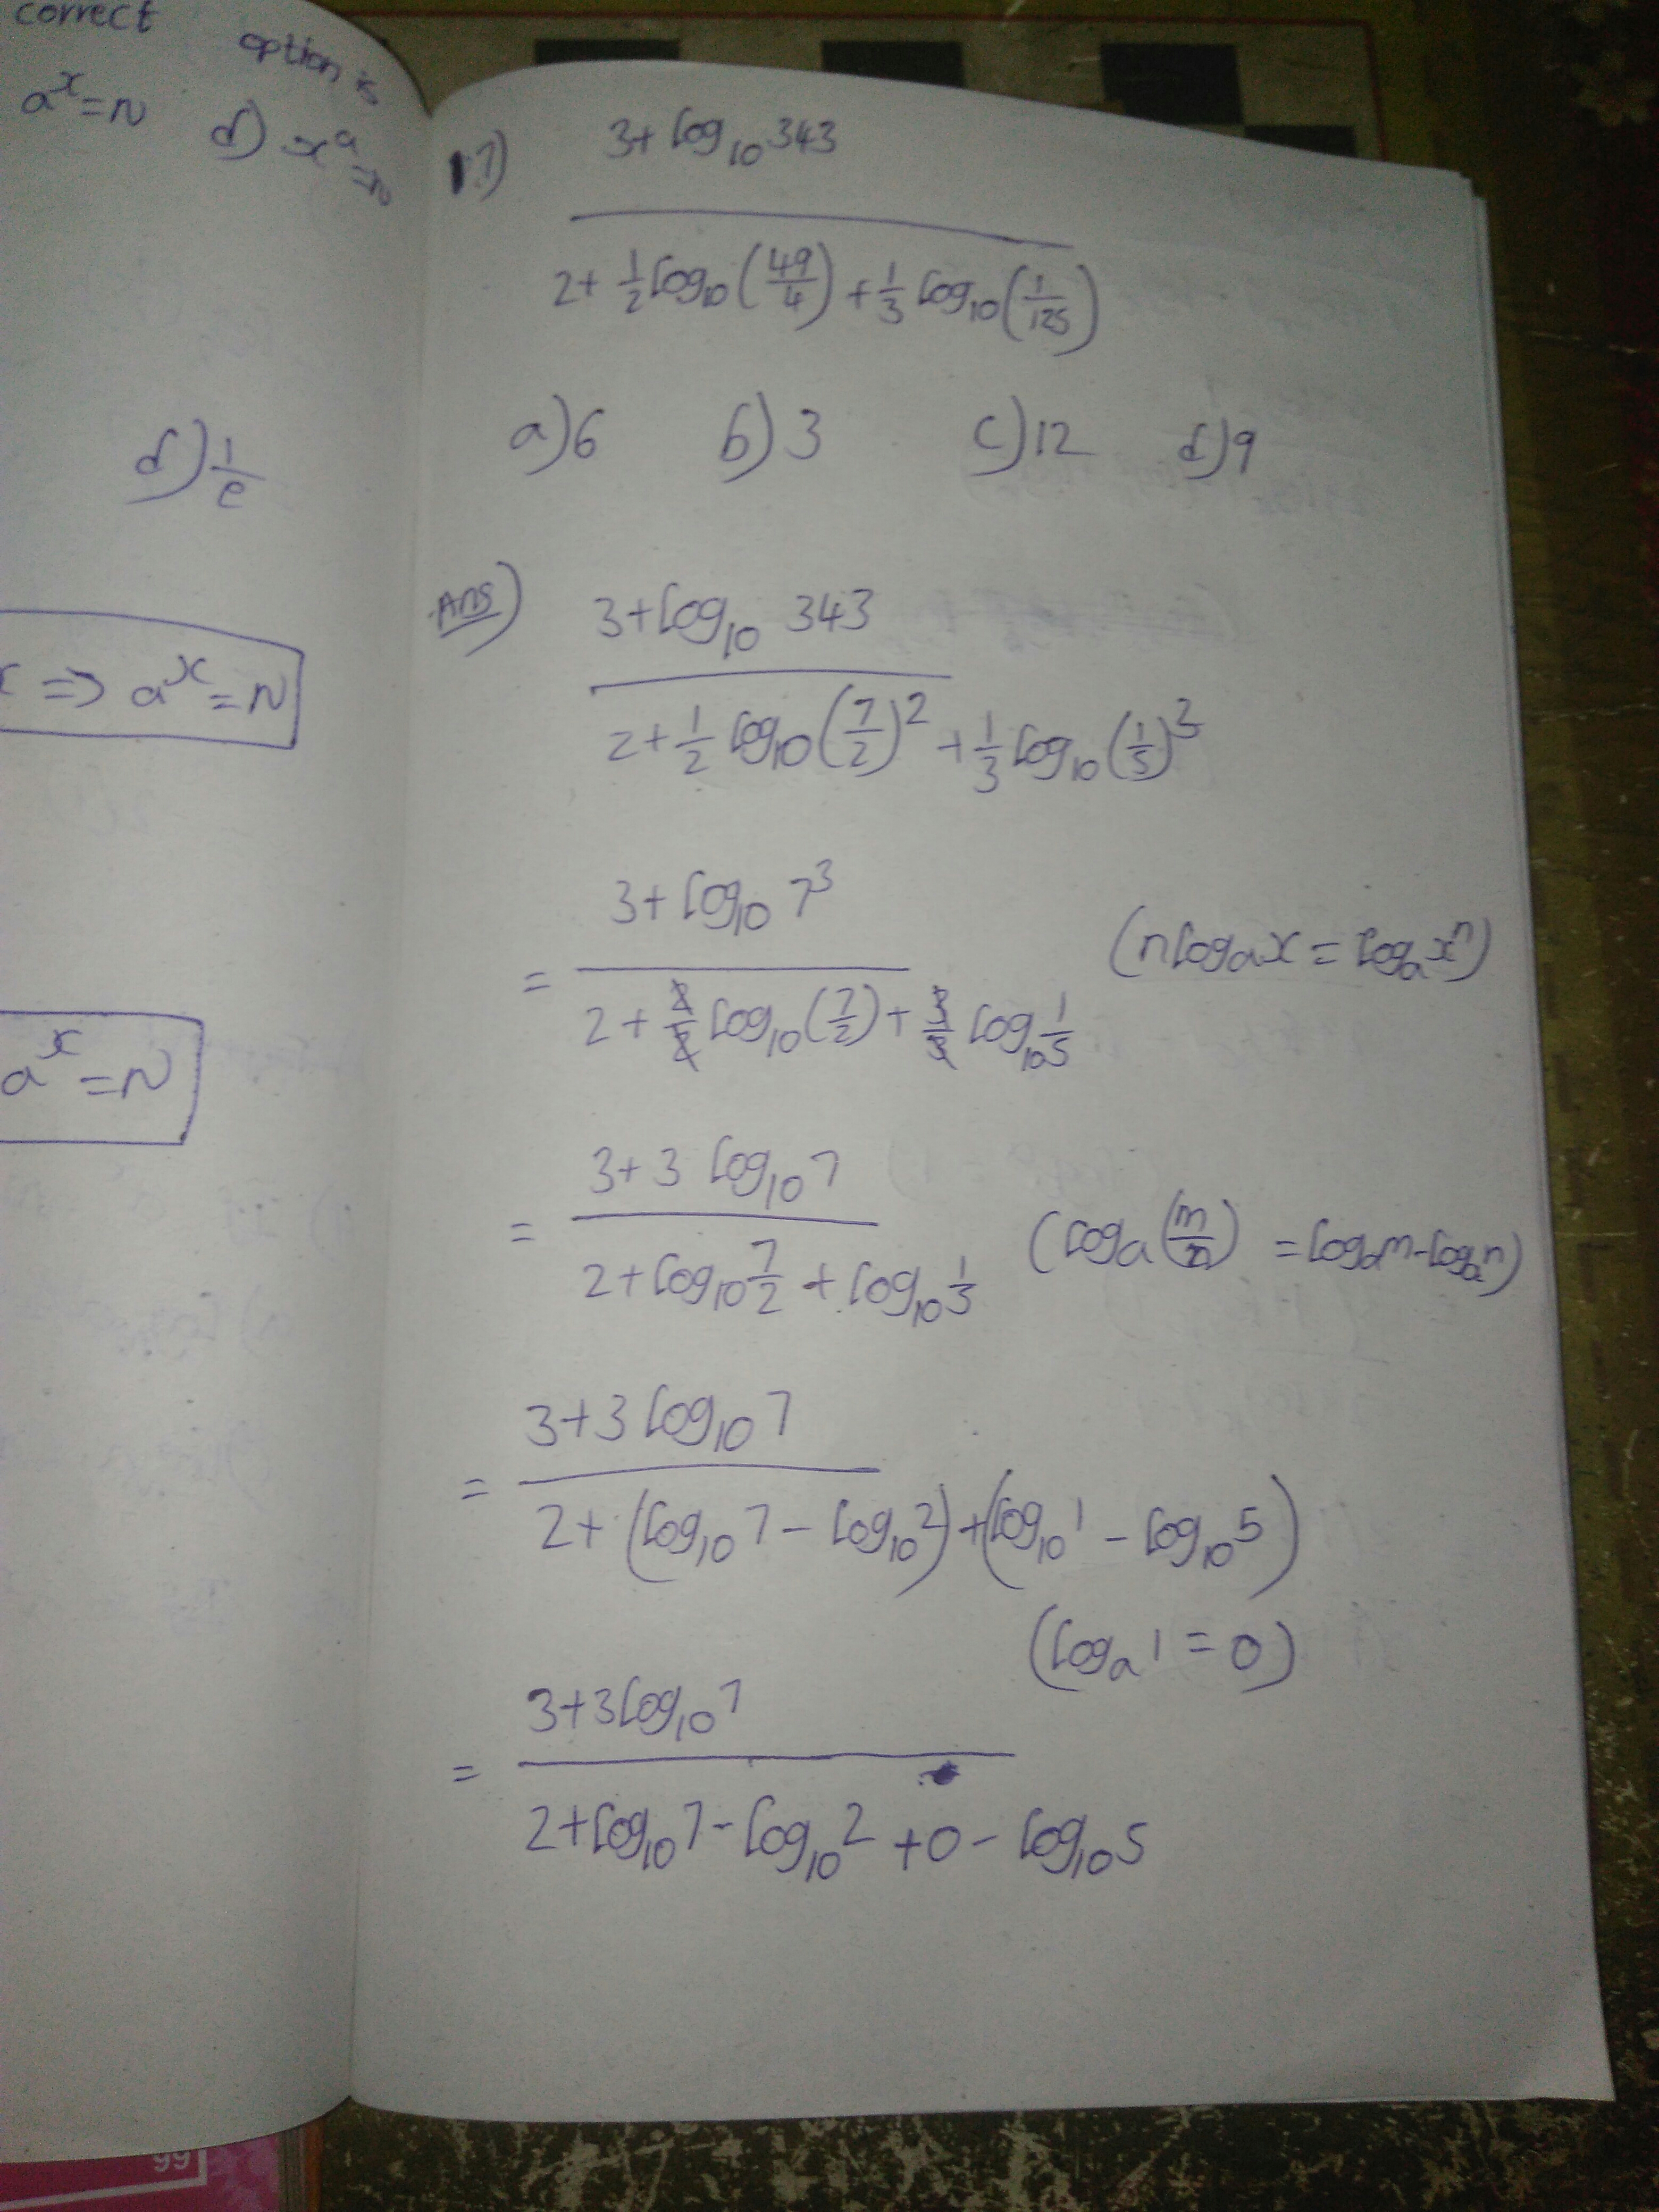 correct option is
a^x = N d) x^a = N
d) 1/e
x => a^x = N
a^x = N
17) (3 + log₁₀ 343) / (2 + 1/2 log₁₀ (49/4) + 1/3 log₁₀ (1/125))
a) 6 b) 3 c) 12 d) 9
Ans) (3 + log₁₀ 343) / (2 + 1/2 log₁₀ (7/2)² + 1/3 log₁₀ (1/5)³)
= (3 + log₁₀ 7³) / (2 + 2/2 log₁₀ (7/2) + 3/3 log₁₀ 1/5) (n logₐ x = logₐ xⁿ)
= (3 + 3 log₁₀ 7) / (2 + log₁₀ 7/2 + log₁₀ 1/3) (logₐ (m/n) = logₐ m - logₐ n)
= (3 + 3 log₁₀ 7) / (2 + (log₁₀ 7 - log₁₀ 2) + (log₁₀ 1 - log₁₀ 5))
(logₐ 1 = 0)
= (3 + 3 log₁₀ 7) / (2 + log₁₀ 7 - log₁₀ 2 + 0 - log₁₀ 5)
99